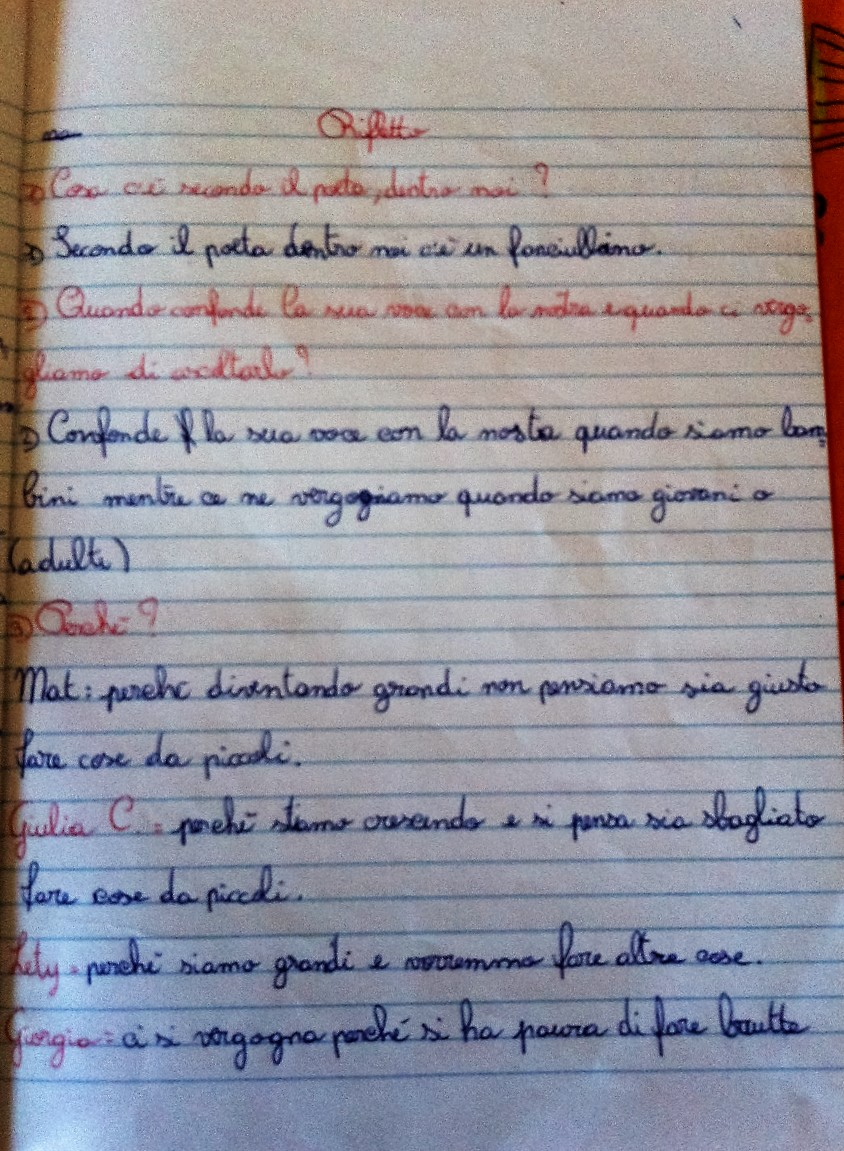 Rifletto
1) Cosa c'è secondo il poeta, dentro noi?
1) Secondo il poeta dentro noi c'è un fanciullino.
2) Quando confonde la sua voce con la nostra e quando ci vergo-
gliamo di ascoltarlo?
2) Confonde la sua voce con la nosta quando siamo bam-
bini mentre ce ne vergogniamo quando siamo giovani o
(adulti)
3) Perché?
Mat: perchè diventando grandi non pensiamo sia giusto
fare cose da piccoli.
Giulia C. = perché stiamo crescendo e si pensa sia sbagliato
fare cose da piccoli.
Lety = perché siamo grandi e vorremmo fare altre cose.
Giorgia = ci si vergogna perché si ha paura di fare brutte